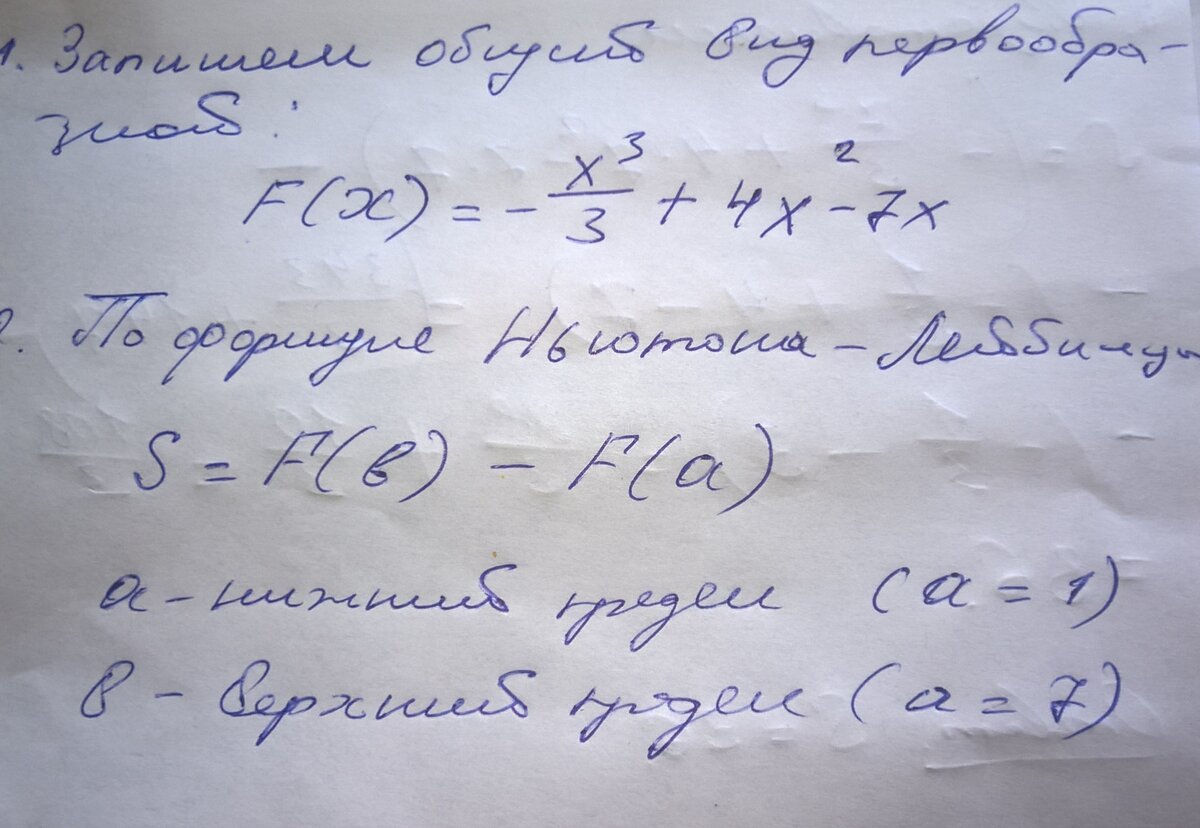 1. Запишем общий вид первообра-
зной:
F(x) = - x³/3 + 4x² - 7x
2. По формуле Ньютона - Лейбница
S = F(в) - F(а)
а - нижний предел (а = 1)
в - верхний предел (а = 7)